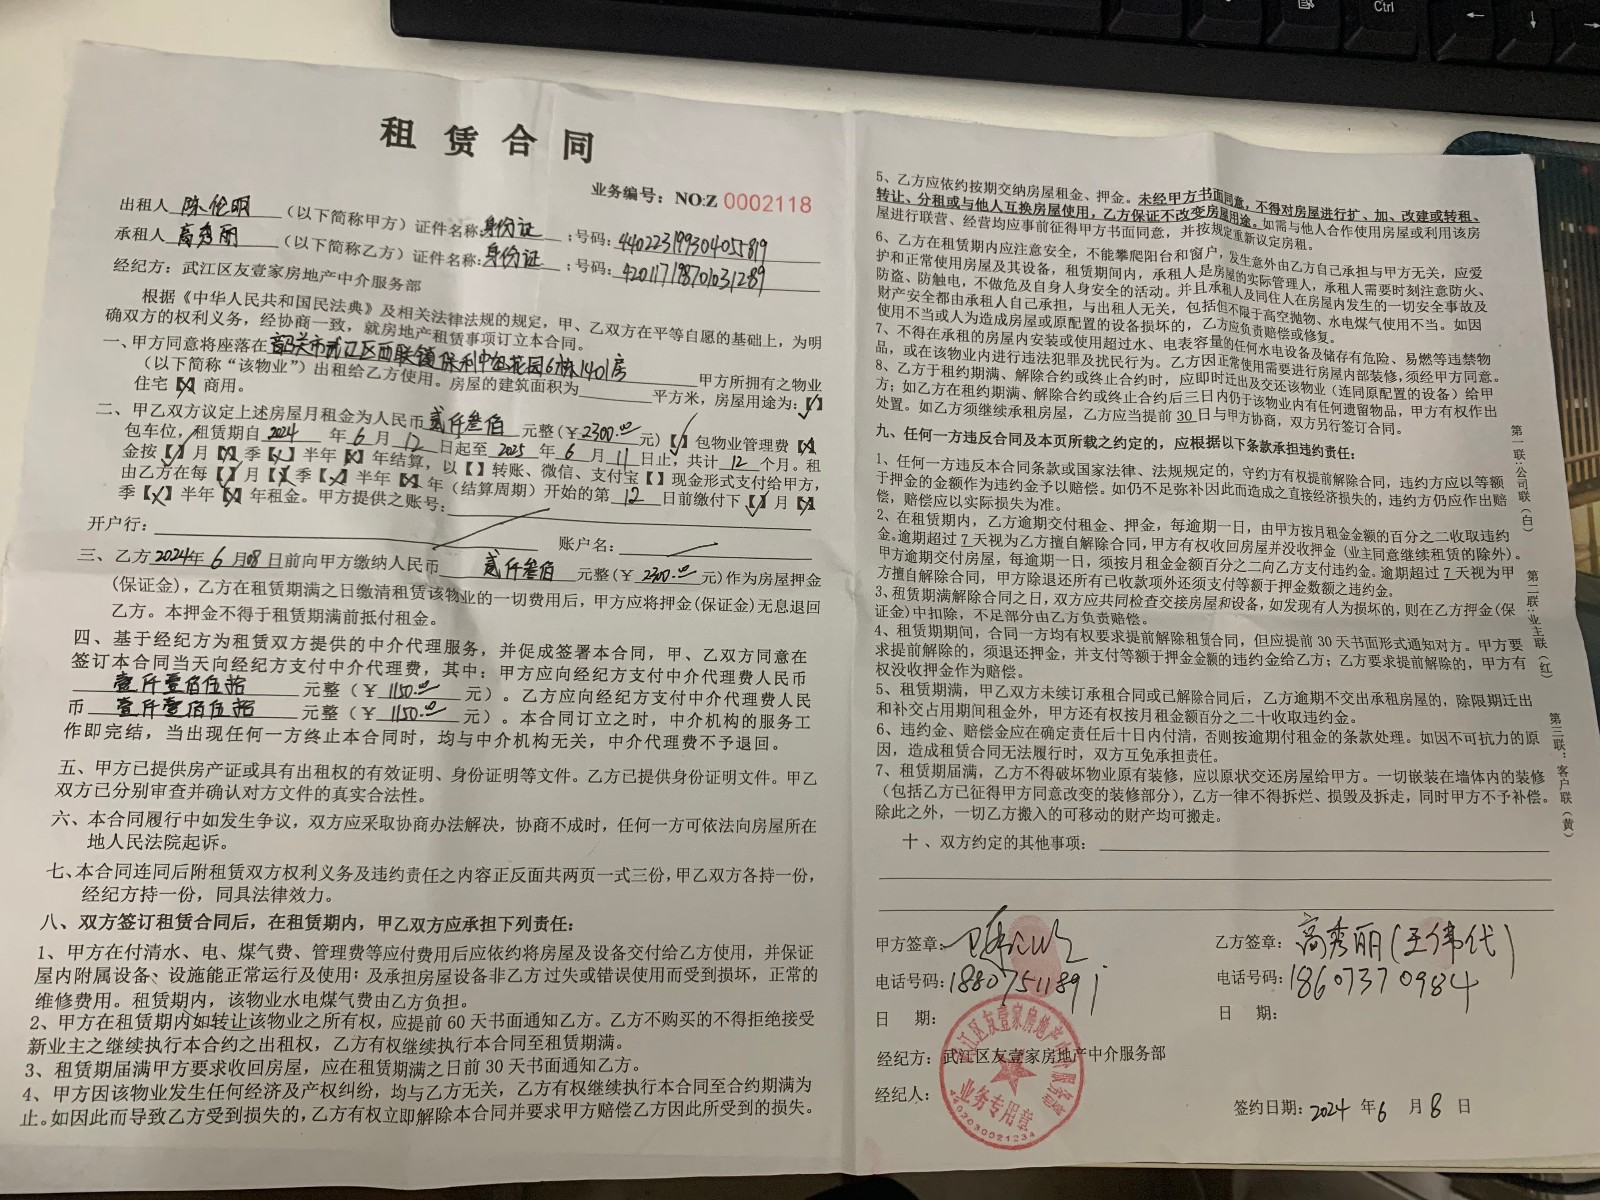 Ctrl
租赁合同
业务编号：NO:Z 0002118
出租人 陈伦明 （以下简称甲方）证件名称:身份证 ;号码:440223199304055819
承租人 高秀丽 （以下简称乙方）证件名称:身份证 ;号码:420117198701031289
经纪方：武江区友壹家房地产中介服务部
根据《中华人民共和国民法典》及相关法律法规的规定，甲、乙双方在平等自愿的基础上，为明
确双方的权利义务，经协商一致，就房地产租赁事项订立本合同。
一、甲方同意将座落在 韶关市武江区西联镇保利中 花园6栋1401房 甲方所拥有之物业
（以下简称“该物业”）出租给乙方使用。房屋的建筑面积为 平方米，房屋用途为：【✓】
住宅【×】商用。
二、甲乙双方议定上述房屋月租金为人民币 贰仟叁佰 元整(￥2300.00 元)【✓】包物业管理费【×】
包车位，租赁期自 2024 年 6 月 12 日起至 2025 年 6 月 11 日止，共计 12 个月。租
金按【✓】月【×】季【×】半年【×】年结算，以【】转账、微信、支付宝【】现金形式支付给甲方，
由乙方在每【✓】月【×】季【×】半年【×】年（结算周期）开始的第 12 日前缴付下【✓】月【×】
季【×】半年【×】年租金。甲方提供之账号:
开户行: 账户名:
三、乙方 2024年 6 月08 日前向甲方缴纳人民币 贰仟叁佰 元整（￥ 2300.00 元)作为房屋押金
(保证金)，乙方在租赁期满之日缴清租赁该物业的一切费用后，甲方应将押金(保证金)无息退回
乙方。本押金不得于租赁期满前抵付租金。
四、基于经纪方为租赁双方提供的中介代理服务，并促成签署本合同，甲、乙双方同意在
签订本合同当天向经纪方支付中介代理费，其中：甲方应向经纪方支付中介代理费人民币
壹仟壹佰伍拾 元整（￥ 1150.00 元）。乙方应向经纪方支付中介代理费人民
币 壹仟壹佰伍拾 元整（￥ 1150.00 元）。本合同订立之时，中介机构的服务工
作即完结，当出现任何一方终止本合同时，均与中介机构无关，中介代理费不予退回。
五、甲方已提供房产证或具有出租权的有效证明、身份证明等文件。乙方已提供身份证明文件。甲乙
双方已分别审查并确认对方文件的真实合法性。
六、本合同履行中如发生争议，双方应采取协商办法解决，协商不成时，任何一方可依法向房屋所在
地人民法院起诉。
七、本合同连同后附租赁双方权利义务及违约责任之内容正反面共两页一式三份，甲乙双方各持一份，
经纪方持一份，同具法律效力。
八、双方签订租赁合同后，在租赁期内，甲乙双方应承担下列责任：
1、甲方在付清水、电、煤气费、管理费等应付费用后应依约将房屋及设备交付给乙方使用，并保证
屋内附属设备、设施能正常运行及使用；及承担房屋设备非乙方过失或错误使用而受到损坏，正常的
维修费用。租赁期内，该物业水电煤气费由乙方负担。
2、甲方在租赁期内如转让该物业之所有权，应提前 60 天书面通知乙方。乙方不购买的不得拒绝接受
新业主之继续执行本合约之出租权，乙方有权继续执行本合同至租赁期满。
3、租赁期届满甲方要求收回房屋，应在租赁期满之日前 30 天书面通知乙方。
4、甲方因该物业发生任何经济及产权纠纷，均与乙方无关，乙方有权继续执行本合同至合约期满为
止。如因此而导致乙方受到损失的，乙方有权立即解除本合同并要求甲方赔偿乙方因此所受到的损失。
5、乙方应依约按期交纳房屋租金、押金。未经甲方书面同意，不得对房屋进行扩、加、改建或转租、
转让、分租或与他人互换房屋使用，乙方保证不改变房屋用途。如需与他人合作使用房屋或利用该房
屋进行联营、经营均应事前征得甲方书面同意，并按规定重新议定房租。
6、乙方在租赁期内应注意安全，不能攀爬阳台和窗户，发生意外由乙方自己承担与甲方无关，应爱
护和正常使用房屋及其设备，租赁期间内，承租人是房屋的实际管理人，承租人需要时刻注意防火、
防盗、防触电，不做危及自身人身安全的活动。并且承租人及同住人在房屋内发生的一切安全事故及
财产安全都由承租人自己承担，与出租人无关，包括但不限于高空抛物、水电煤气使用不当。如因
使用不当或人为造成房屋或原配置的设备损坏的，乙方应负责赔偿或修复。
7、不得在承租的房屋内安装或使用超过水、电表容量的任何水电设备及储存有危险、易燃等违禁物
品，或在该物业内进行违法犯罪及扰民行为。乙方因正常使用需要进行房屋内部装修，须经甲方同意。
8、乙方于租约期满、解除合约或终止合约时，应即时迁出及交还该物业（连同原配置的设备）给甲
方；如乙方在租约期满、解除合约或终止合约后三日内仍于该物业内有任何遗留物品，甲方有权作出
处置。如乙方须继续承租房屋，乙方应当提前 30 日与甲方协商，双方另行签订合同。
九、任何一方违反合同及本页所载之约定的，应根据以下条款承担违约责任：
1、任何一方违反本合同条款或国家法律、法规规定的，守约方有权提前解除合同，违约方应以等额
于押金的金额作为违约金予以赔偿。如仍不足弥补因此而造成之直接经济损失的，违约方仍应作出赔
偿，赔偿应以实际损失为准。
2、在租赁期内，乙方逾期交付租金、押金，每逾期一日，由甲方按月租金金额的百分之二收取违约
金。逾期超过 7 天视为乙方擅自解除合同，甲方有权收回房屋并没收押金（业主同意继续租赁的除外）。
甲方逾期交付房屋，每逾期一日，须按月租金金额百分之二向乙方支付违约金。逾期超过 7 天视为甲
方擅自解除合同，甲方除退还所有已收款项外还须支付等额于押金数额之违约金。
3、租赁期满解除合同之日，双方应共同检查交接房屋和设备，如发现有人为损坏的，则在乙方押金(保
证金)中扣除，不足部分由乙方负责赔偿。
4、租赁期期间，合同一方均有权要求提前解除租赁合同，但应提前 30 天书面形式通知对方。甲方要
求提前解除的，须退还押金，并支付等额于押金金额的违约金给乙方；乙方要求提前解除的，甲方有
权没收押金作为赔偿。
5、租赁期满，甲乙双方未续订承租合同或已解除合同后，乙方逾期不交出承租房屋的，除限期迁出
和补交占用期间租金外，甲方还有权按月租金额百分之二十收取违约金。
6、违约金、赔偿金应在确定责任后十日内付清，否则按逾期付租金的条款处理。如因不可抗力的原
因，造成租赁合同无法履行时，双方互免承担责任。
7、租赁期届满，乙方不得破坏物业原有装修，应以原状交还房屋给甲方。一切嵌装在墙体内的装修
（包括乙方已征得甲方同意改变的装修部分），乙方一律不得拆烂、损毁及拆走，同时甲方不予补偿。
除此之外，一切乙方搬入的可移动的财产均可搬走。
十、双方约定的其他事项：
甲方签章:
电话号码:18807511891
日 期:
乙方签章: 高秀丽(王伟代)
电话号码:18607370984
日 期:
经纪方: 武江区友壹家房地产中介服务部
经纪人:
签约日期: 2024 年 6 月 8 日
武江区友壹家房地产中介服务部
业务专用章
4402030021234
第一联:公司联（白）
第二联:业主联（红）
第三联:客户联（黄）